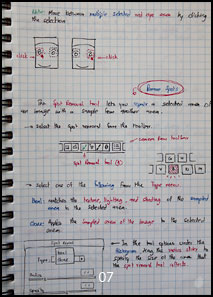 Note: Move between multiple selected red eye areas by clicking
the selection
click
click
Remove Spots
The Spot Removal tool lets you repair a selected area of
an image with a sample from another area.
→ Select the spot removal from the toolbar.
camera Raw toolbar
Spot Removal tool (B)
→ Select one of the following from the Type menu
Heal: matches the texture, lighting, and shading of the sampled
area to the selected area.
Clone: Applies the sampled area of the image to the selected
area.
Spot Removal
Type:
Heal
clone
Radius
Opacity
→ In the tool options under the
Histogram, drag the radius slider to
specify the size of the area that
the spot removal tool affects.
07